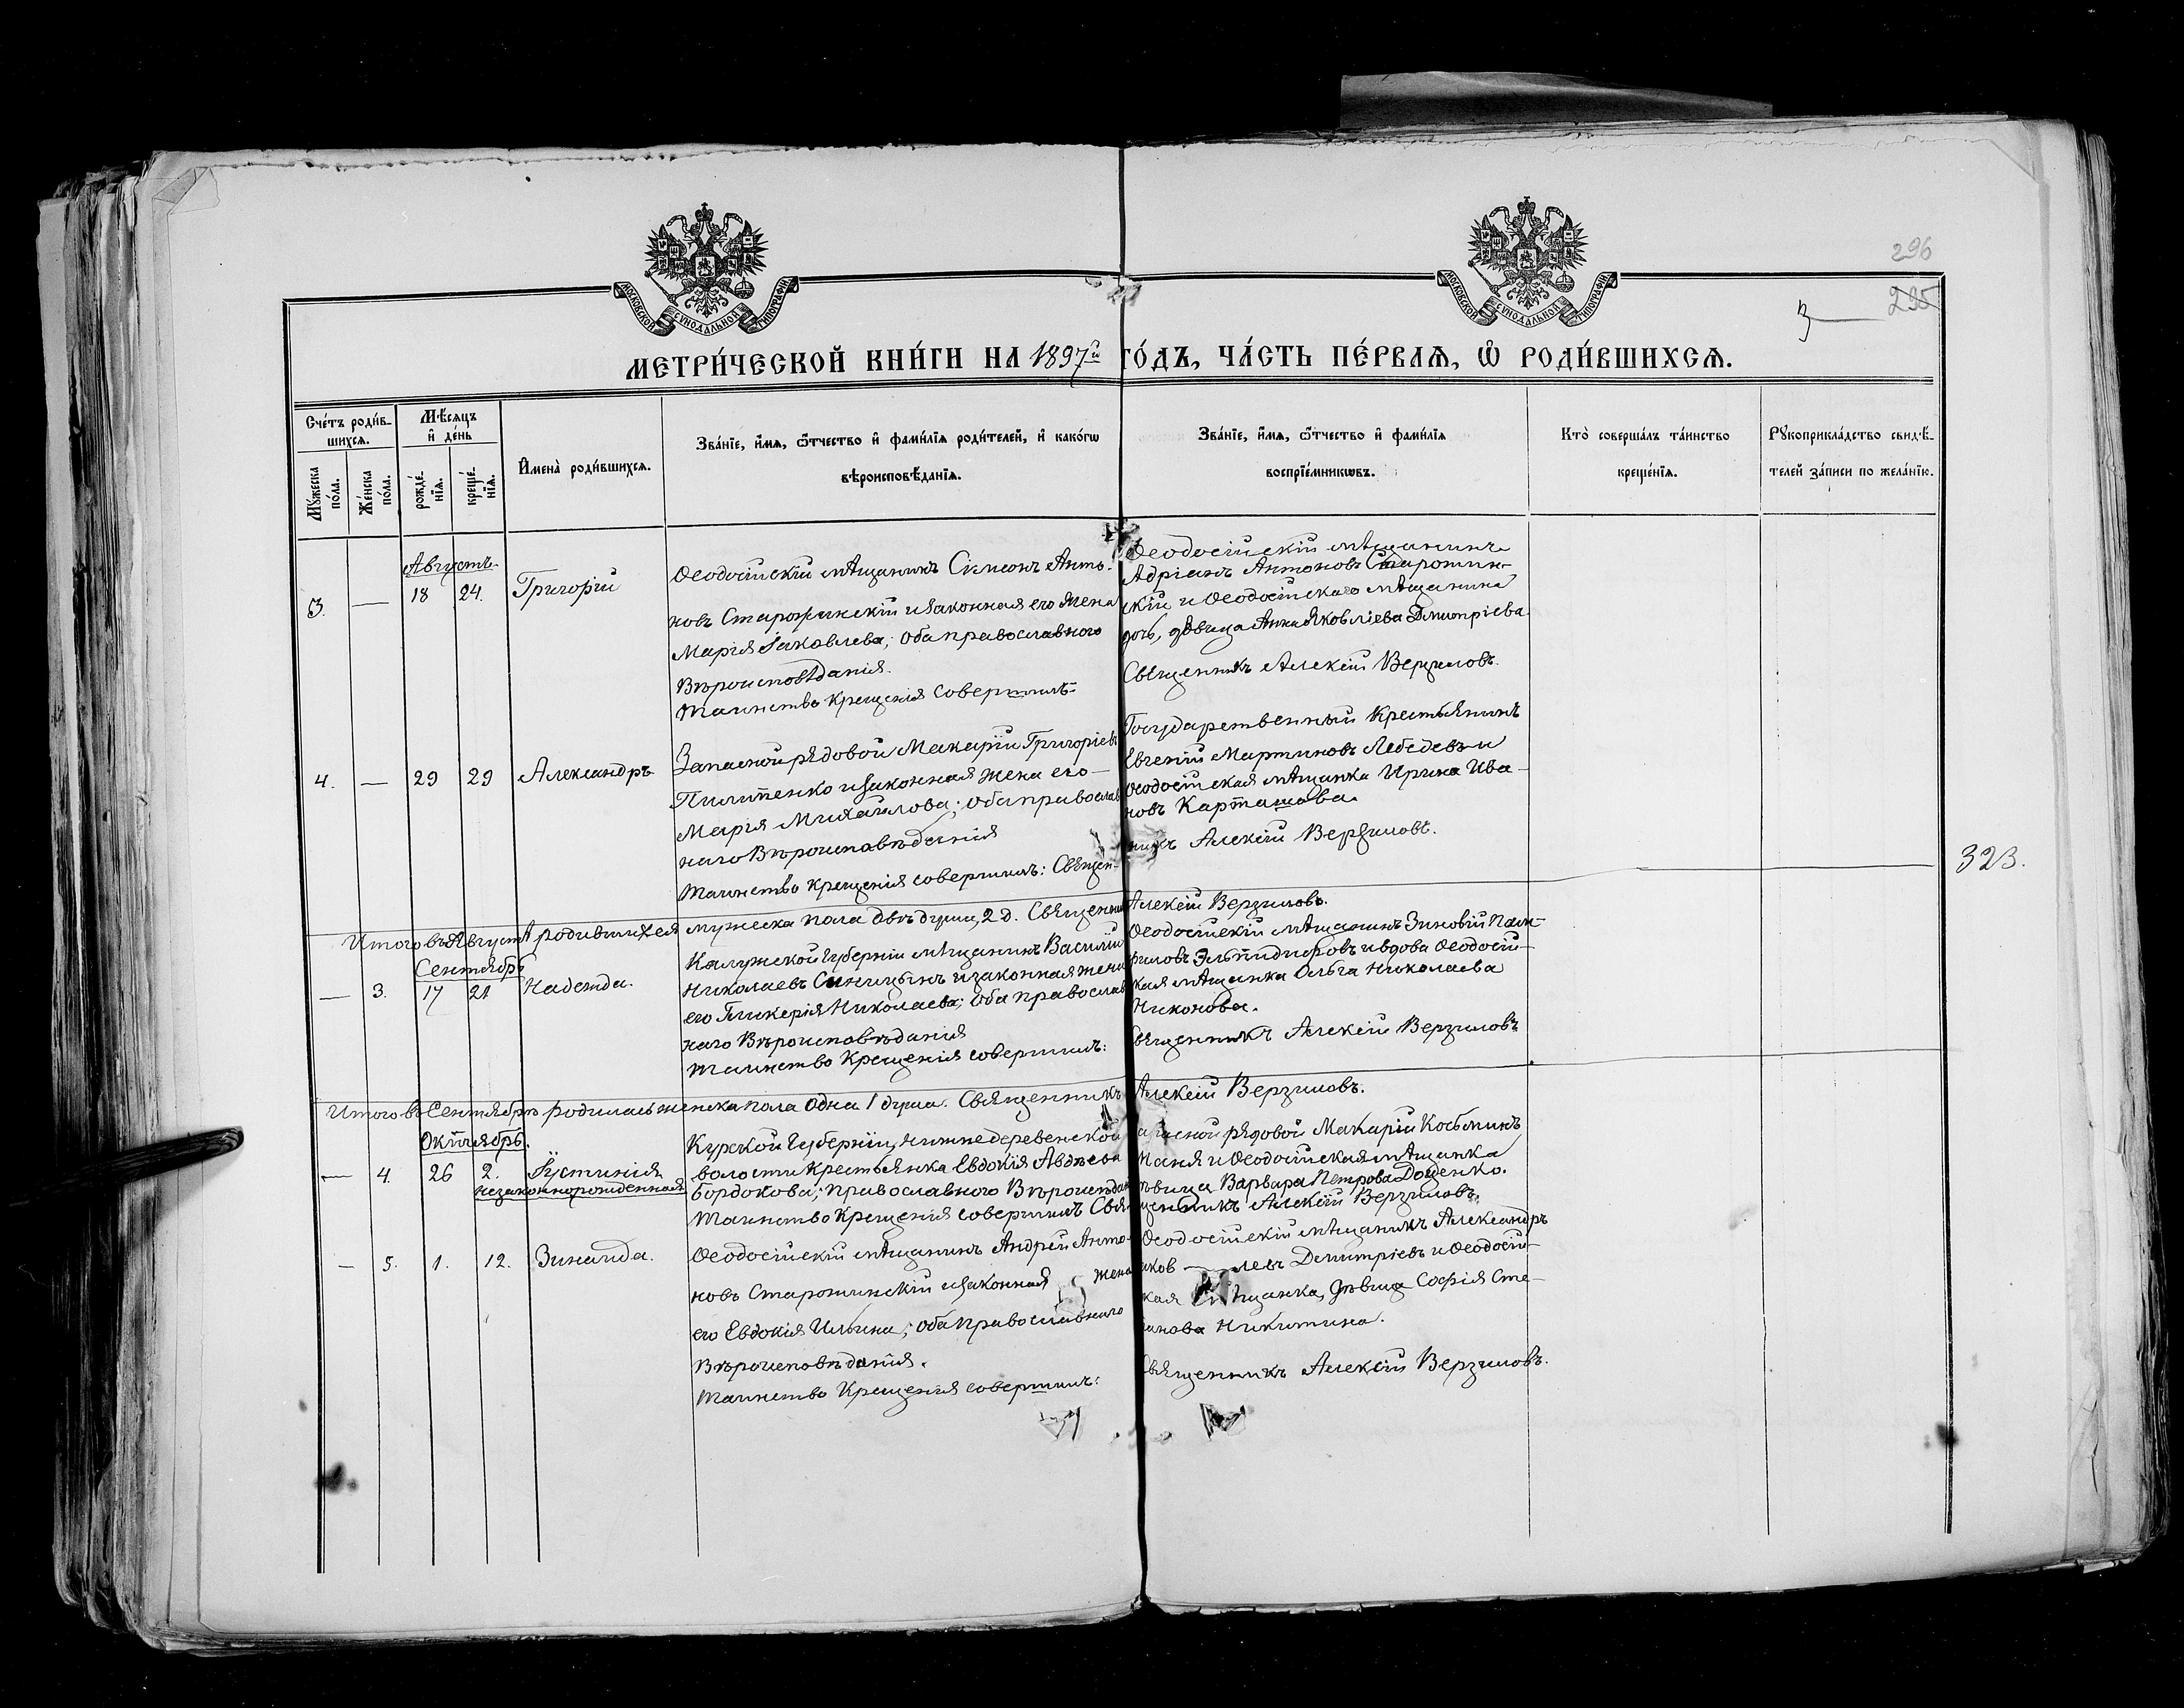 296
295
3
МОСКОВСКОЙ СѴНОДАЛЬНОЙ ТИПОГРАФІИ
МОСКОВСКОЙ СѴНОДАЛЬНОЙ ТИПОГРАФІИ
МЕТРИ́ЧЕСКОЙ КНИ́ГИ НА 1897й ГО́ДЪ, ЧА́СТЬ ПЕ́РВАѦ, Ѡ РОДИ́ВШИХСѦ.
Сче́тъ роди́в-
шихсѧ.
Мѣ́сѧцъ
и де́нь
Мꙋ́жеска по́ла.
Же́нска по́ла.
рожде́-
нїѧ.
креще́-
нїѧ.
Имена̀ роди́вшихсѧ.
Зва́нїе, и́мѧ, ѻ́тчество и фами́лїѧ роди́телей, и како́гѡ
вѣроисповѣ́данїѧ.
Зва́нїе, и́мѧ, ѻ́тчество и фами́лїѧ
воспрїе́мникѡвъ.
Кто̀ соверша́лъ та́инство
креще́нїѧ.
Рꙋкоприкла́дство свидѣ́-
телей за́писи по жела́нїю.
Августъ.
3. — 18 24. Григорій
Ѳеодосійскій мѣщанинъ Сімеонъ Анто-
новъ Старожинскій и законная его жена
Марія Іаковлева; оба православнаго
Вѣроисповѣданія.
Таинство крещенія совершилъ:
Ѳеодосійскій мѣщанинъ
Адріанъ Антоновъ Старожин-
скій и Ѳеодосійскаго мѣщанина
дочь, дѣвица Анна Яковлева Дмитріева
Священникъ Алексій Верзиловъ.
4. — 29 29 Александръ
Запасной рядовой Макарій Григоріевъ
Пилипенко и законная жена его—
Марія Михайлова; оба православ
наго Вѣроисповѣданія
Таинство крещенія совершилъ: Священ-
Государственный крестьянинъ
Евгеній Мартиновъ Лебедевъ и
Ѳеодосійская мѣщанка Ирина Ива-
новъ Карташова.
никъ Алексій Верзиловъ.
323.
Итого въ Августѣ родившихся мужеска пола двѣ души, 2 д. Священникъ Алексій Верзиловъ.
Сентябрь
— 3. 17 21 Надежда.
Калужской Губерніи мѣщанинъ Василій
Николаевъ Синицынъ и законная жена
его Гликерія Николаева; оба православ
наго Вѣроисповѣданія
Таинство Крещенія совершилъ:
Ѳеодосійскій мѣщанинъ Зиновій Пам-
филовъ Эльпидифоровъ и вдова Ѳеодосій-
ская мѣщанка Ольга Николаева
Никонова.
Священникъ Алексій Верзиловъ
Итого въ Сентябрѣ родилась женска пола одна 1 душа. Священникъ Алексій Верзиловъ.
Октябрь.
— 4. 26 2. Іустинія
незаконнорожденная
Курской Губерніи, Нижнедеревенской
волости крестьянка Евдокія Авдѣева
Бордокова; православнаго Вѣроисповѣдан
Таинство Крещенія совершилъ Свя
запасной рядовой Макарій Косьминъ
Маня и Ѳеодосійская мѣщанка
дѣвица Варвара Петрова Доценко.
щенникъ Алексій Верзиловъ.
— 5. 1. 12. Зинаида.
Ѳеодосійскій мѣщанинъ Андрей Анто-
новъ Старожинскій и законная жена
его Евдокія Ильина; оба православнаго
Вѣроисповѣданія.
Таинство Крещенія совершилъ:
Ѳеодосійскій мѣщанинъ Александръ
Яков — левъ Димитріевъ и Ѳеодосій-
ская мѣщанка, дѣвица Софія Сте-
панова Никитина.
Священникъ Алексій Верзиловъ.